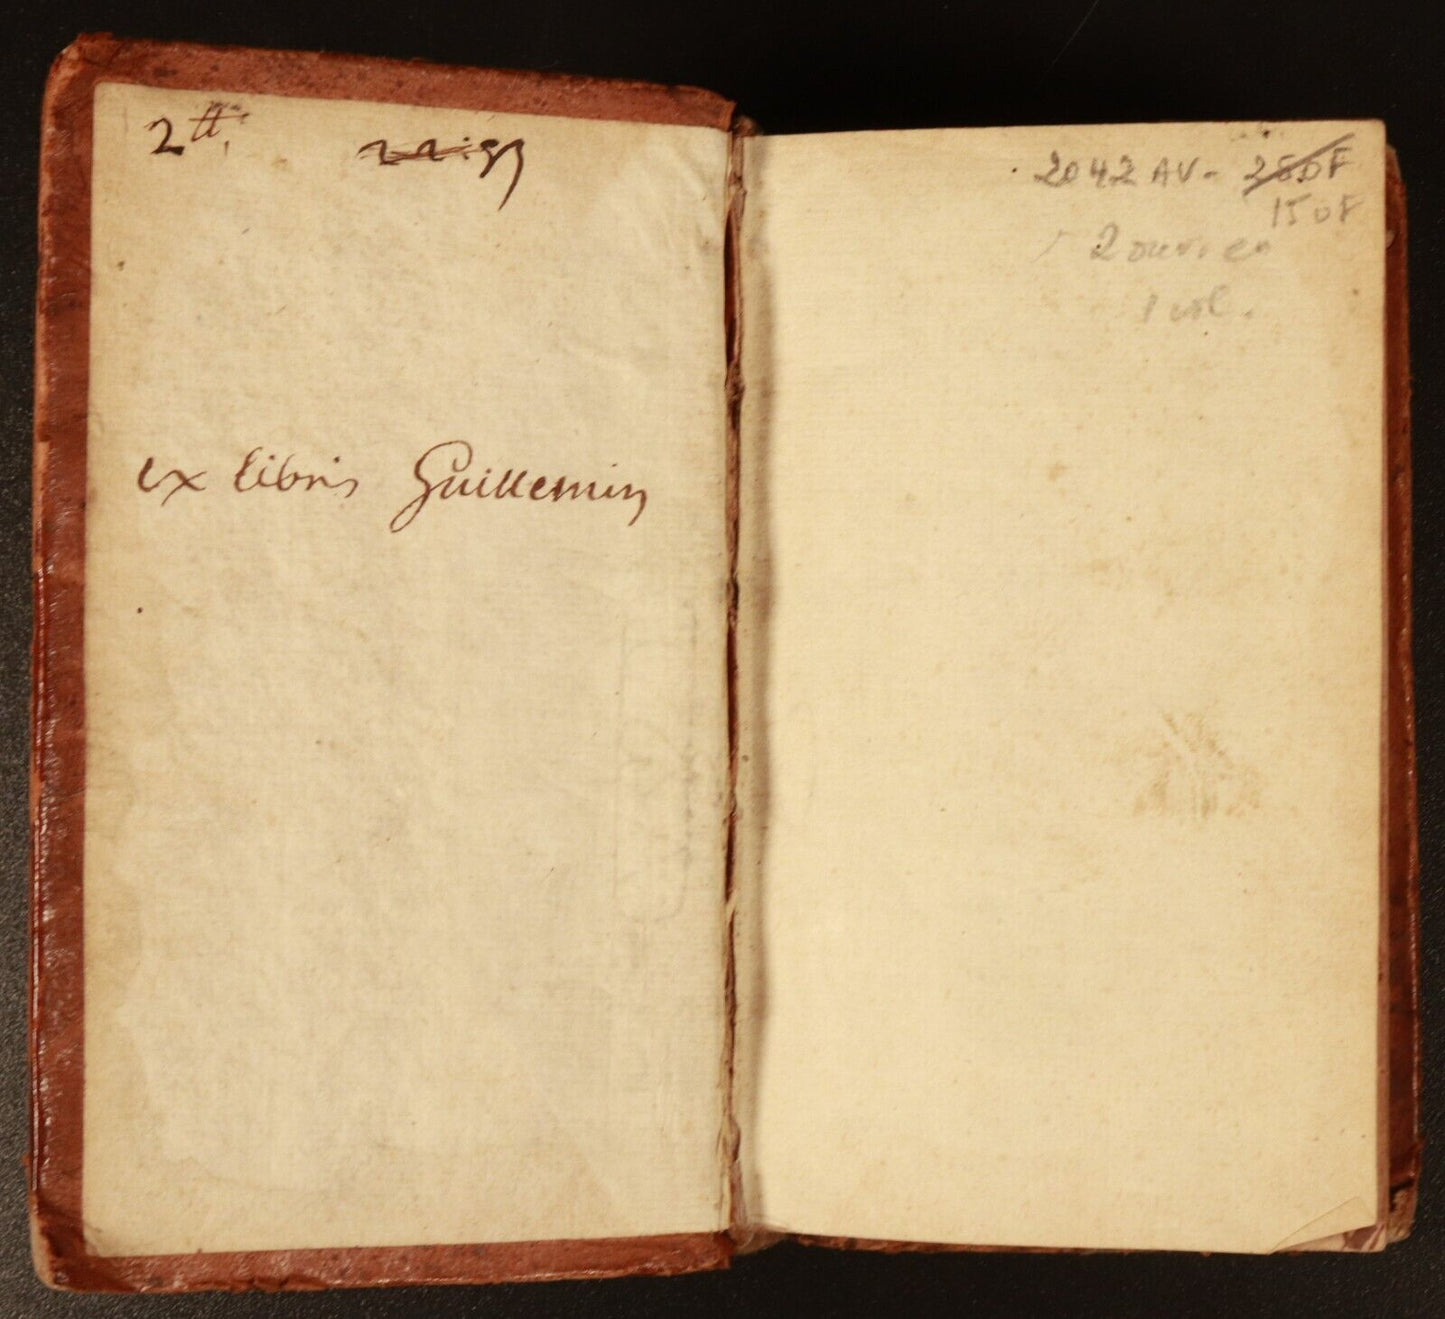 2 ₶.
ex libris Guillemin
2042 AV - 280F
150F
2 ouv. en
1 vol.